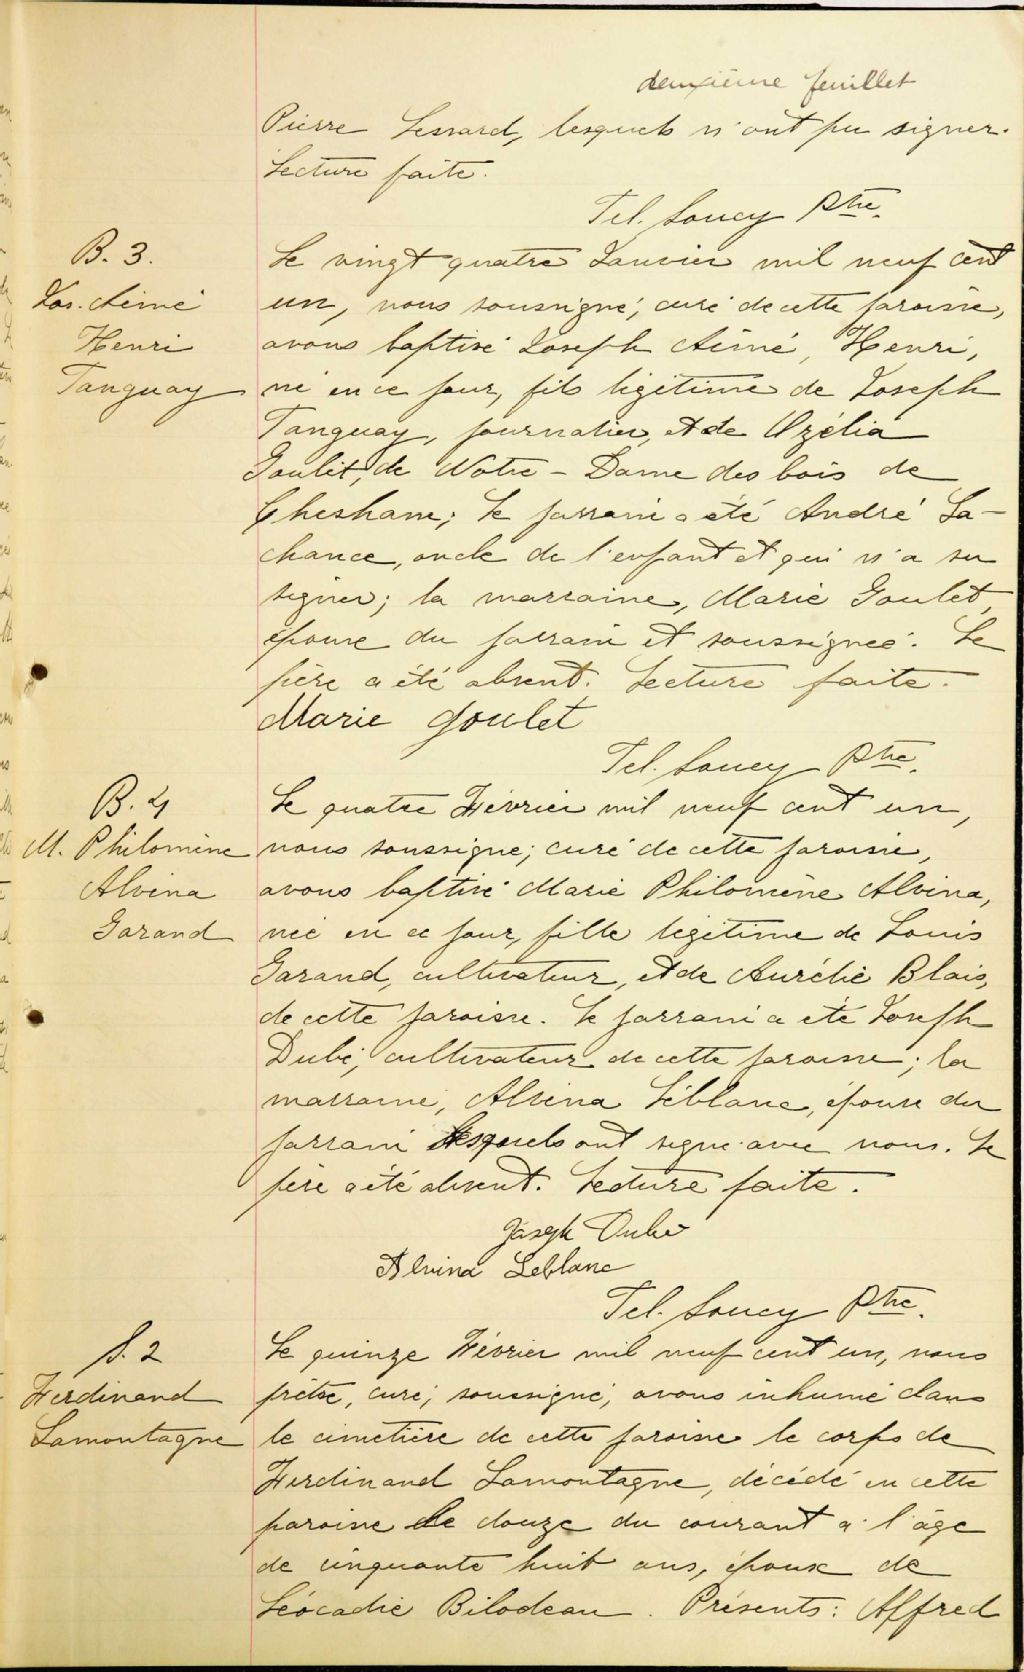 deuxième feuillet
Pierre Lessard, lesquels n'ont pu signer.
Lecture faite.
Tel. Soucy Ptre.
B. 3.
Jos. Aimé
Henri
Tanguay
Le vingt quatre Janvier mil neuf cent
un, nous soussigné, curé de cette paroisse,
avons baptisé Joseph Aimé, Henri,
né en ce jour, fils légitime de Joseph
Tanguay, journalier, et de Ozélia
Goulet, de Notre-Dame des bois de
Chesham; le parrain a été André La-
chance, oncle de l'enfant et qui n'a su
signer; la marraine, Marie Goulet,
épouse du parrain et soussignée. Le
père a été absent. Lecture faite.
Marie Goulet
Tel. Soucy Ptre.
B. 4
M. Philomène
Alvina
Garand
Le quatre Février mil neuf cent un,
nous soussigné, curé de cette paroisse,
avons baptisé Marie Philomène Alvina,
née en ce jour, fille légitime de Louis
Garand, cultivateur, et de Aurélie Blais,
de cette paroisse. Le parrain a été Joseph
Dubé, cultivateur de cette paroisse; la
marraine, Alvina Léblanc, épouse du
parrain lesquels ont signé avec nous. Le
père a été absent. Lecture faite.
Joseph Dubé
Alvina Leblanc
Tel. Soucy Ptre.
S. 2
Ferdinand
Lamontagne
Le quinze Février mil neuf cent un, nous
prêtre, curé, soussigné, avons inhumé dans
le cimetière de cette paroisse le corps de
Ferdinand Lamontagne, décédé en cette
paroisse le douze du courant a l'âge
de cinquante huit ans, époux de
Léocadie Bilodeau. Présents: Alfred